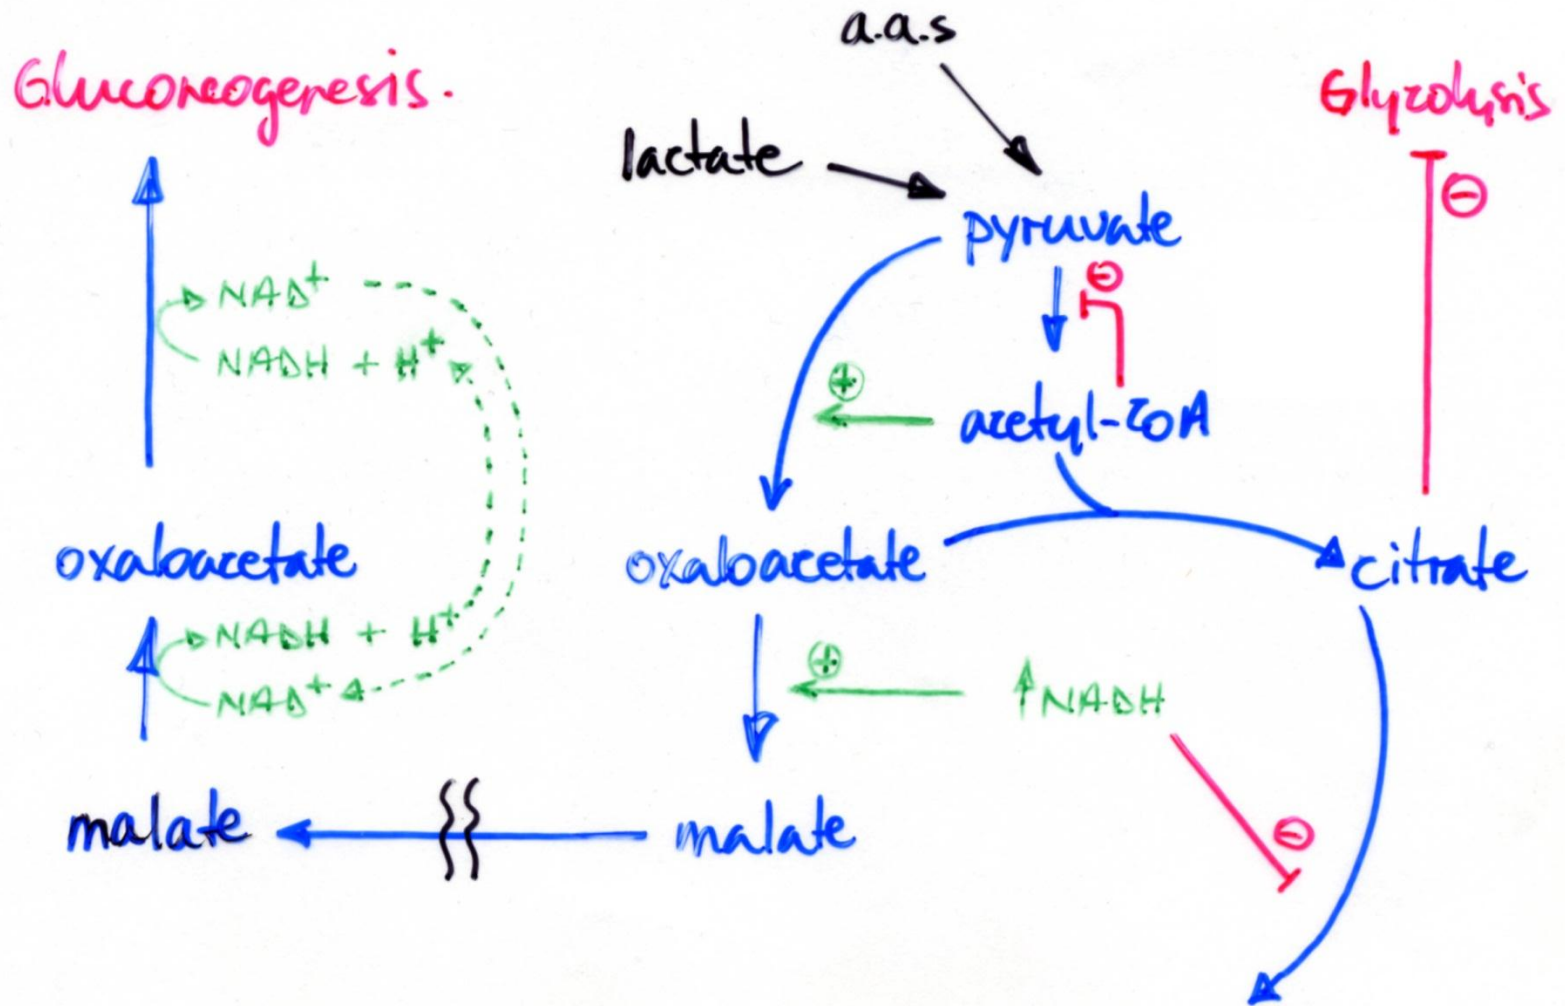 a.a.s
Gluconeogenesis.
Glycolysis
lactate
⊖
pyruvate
NAD+
⊖
NADH + H+
⊕
acetyl-CoA
oxaloacetate
oxaloacetate
citrate
NADH + H+
⊕
NAD+
↑NADH
malate
malate
⊖